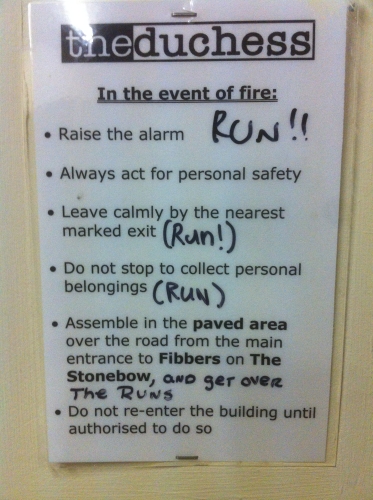 theduchess
In the event of fire:
• Raise the alarm RUN!!
• Always act for personal safety
• Leave calmly by the nearest
marked exit (Run!)
• Do not stop to collect personal
belongings (RUN)
• Assemble in the paved area
over the road from the main
entrance to Fibbers on The
Stonebow, AND GET OVER
THE RUNS
• Do not re-enter the building until
authorised to do so